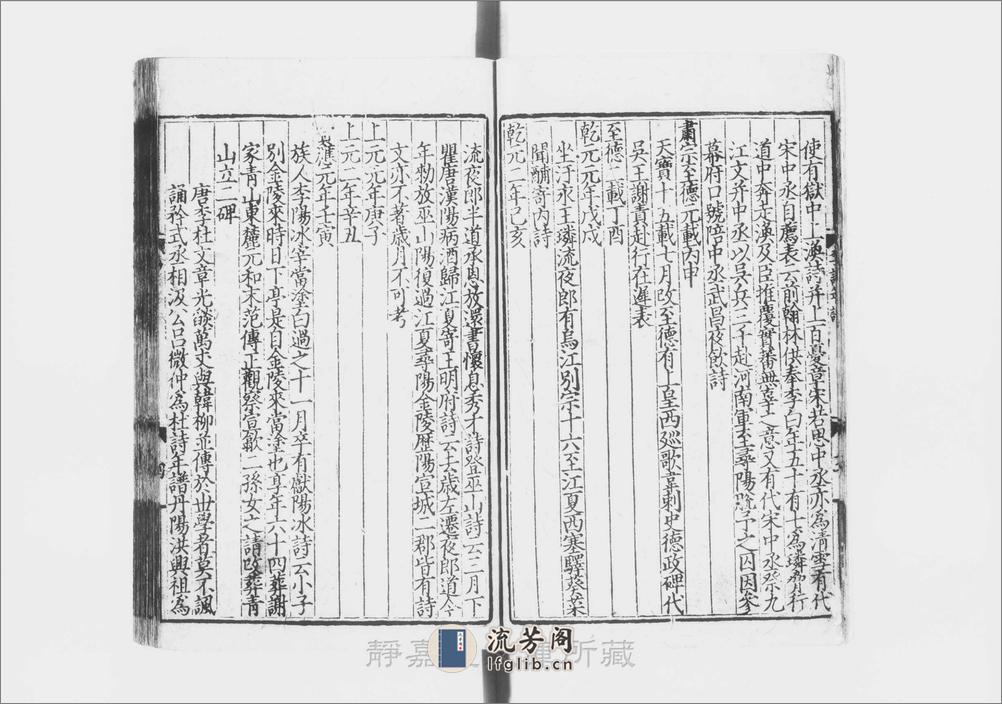 使有獄中上渙詩并上百憂章宋若思中丞亦為清雪有代
宋中丞自薦表云前翰林供奉李白年五十有七為璘脅行
道中奔走渙及臣推覆實審無辜之意又有代宋中丞祭九
江文并中丞以吳兵三千赴河南軍至尋陽脫予之囚因參
幕府口號陪中丞武昌夜飲詩
肅宗至德元載丙申
天寶十五載七月改至德有上皇西廵歌韋刺史德政碑代
吳王謝責赴行在遲表
至德二載丁酉
乾元元年戊戌
坐汙永王璘流夜郎有烏江別宗十六至江夏西塞驛葵葉
聞酺寄內詩
乾元二年己亥
流夜郎半道承恩放還書懷息秀才詩登巫山詩云三月下
瞿唐漢陽病酒歸江夏寄王明府詩云去歲左遷夜郎道今
年勑放巫山陽復過江夏尋陽金陵歷陽宣城二郡皆有詩
文亦不著歲月不可考
上元元年庚子
上元二年辛丑
元年壬寅
族人李陽冰宰當塗白過之十一月卒有獻陽冰詩云小子
別金陵來時白下亭是自金陵來當塗也享年六十四葬謝
家青山東麓元和末范傳正觀察宣歙二孫女之請改葬青
山立二碑
唐李杜文章光燄萬丈與韓柳並傳於世學者莫不諷
誦矜式丞相汲公呂微仲為杜詩年譜丹陽洪興祖為
靜嘉 所藏
流芳阁
lfglib.cn